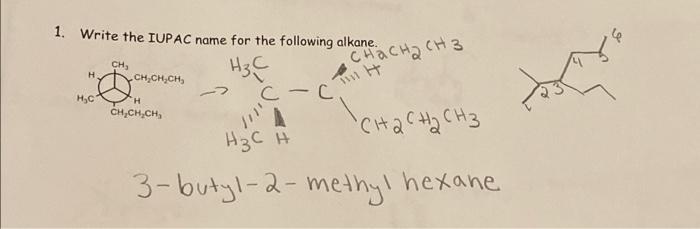 1. Write the IUPAC name for the following alkane.
CH₃
H
CH₂CH₂CH₃
H₃C
H
CH₂CH₂CH₃
H3C
CH2CH2CH3
H
C - C
H3C H
CH2CH2CH3
6
4 5
2 3
1
3-butyl-2-methyl hexane